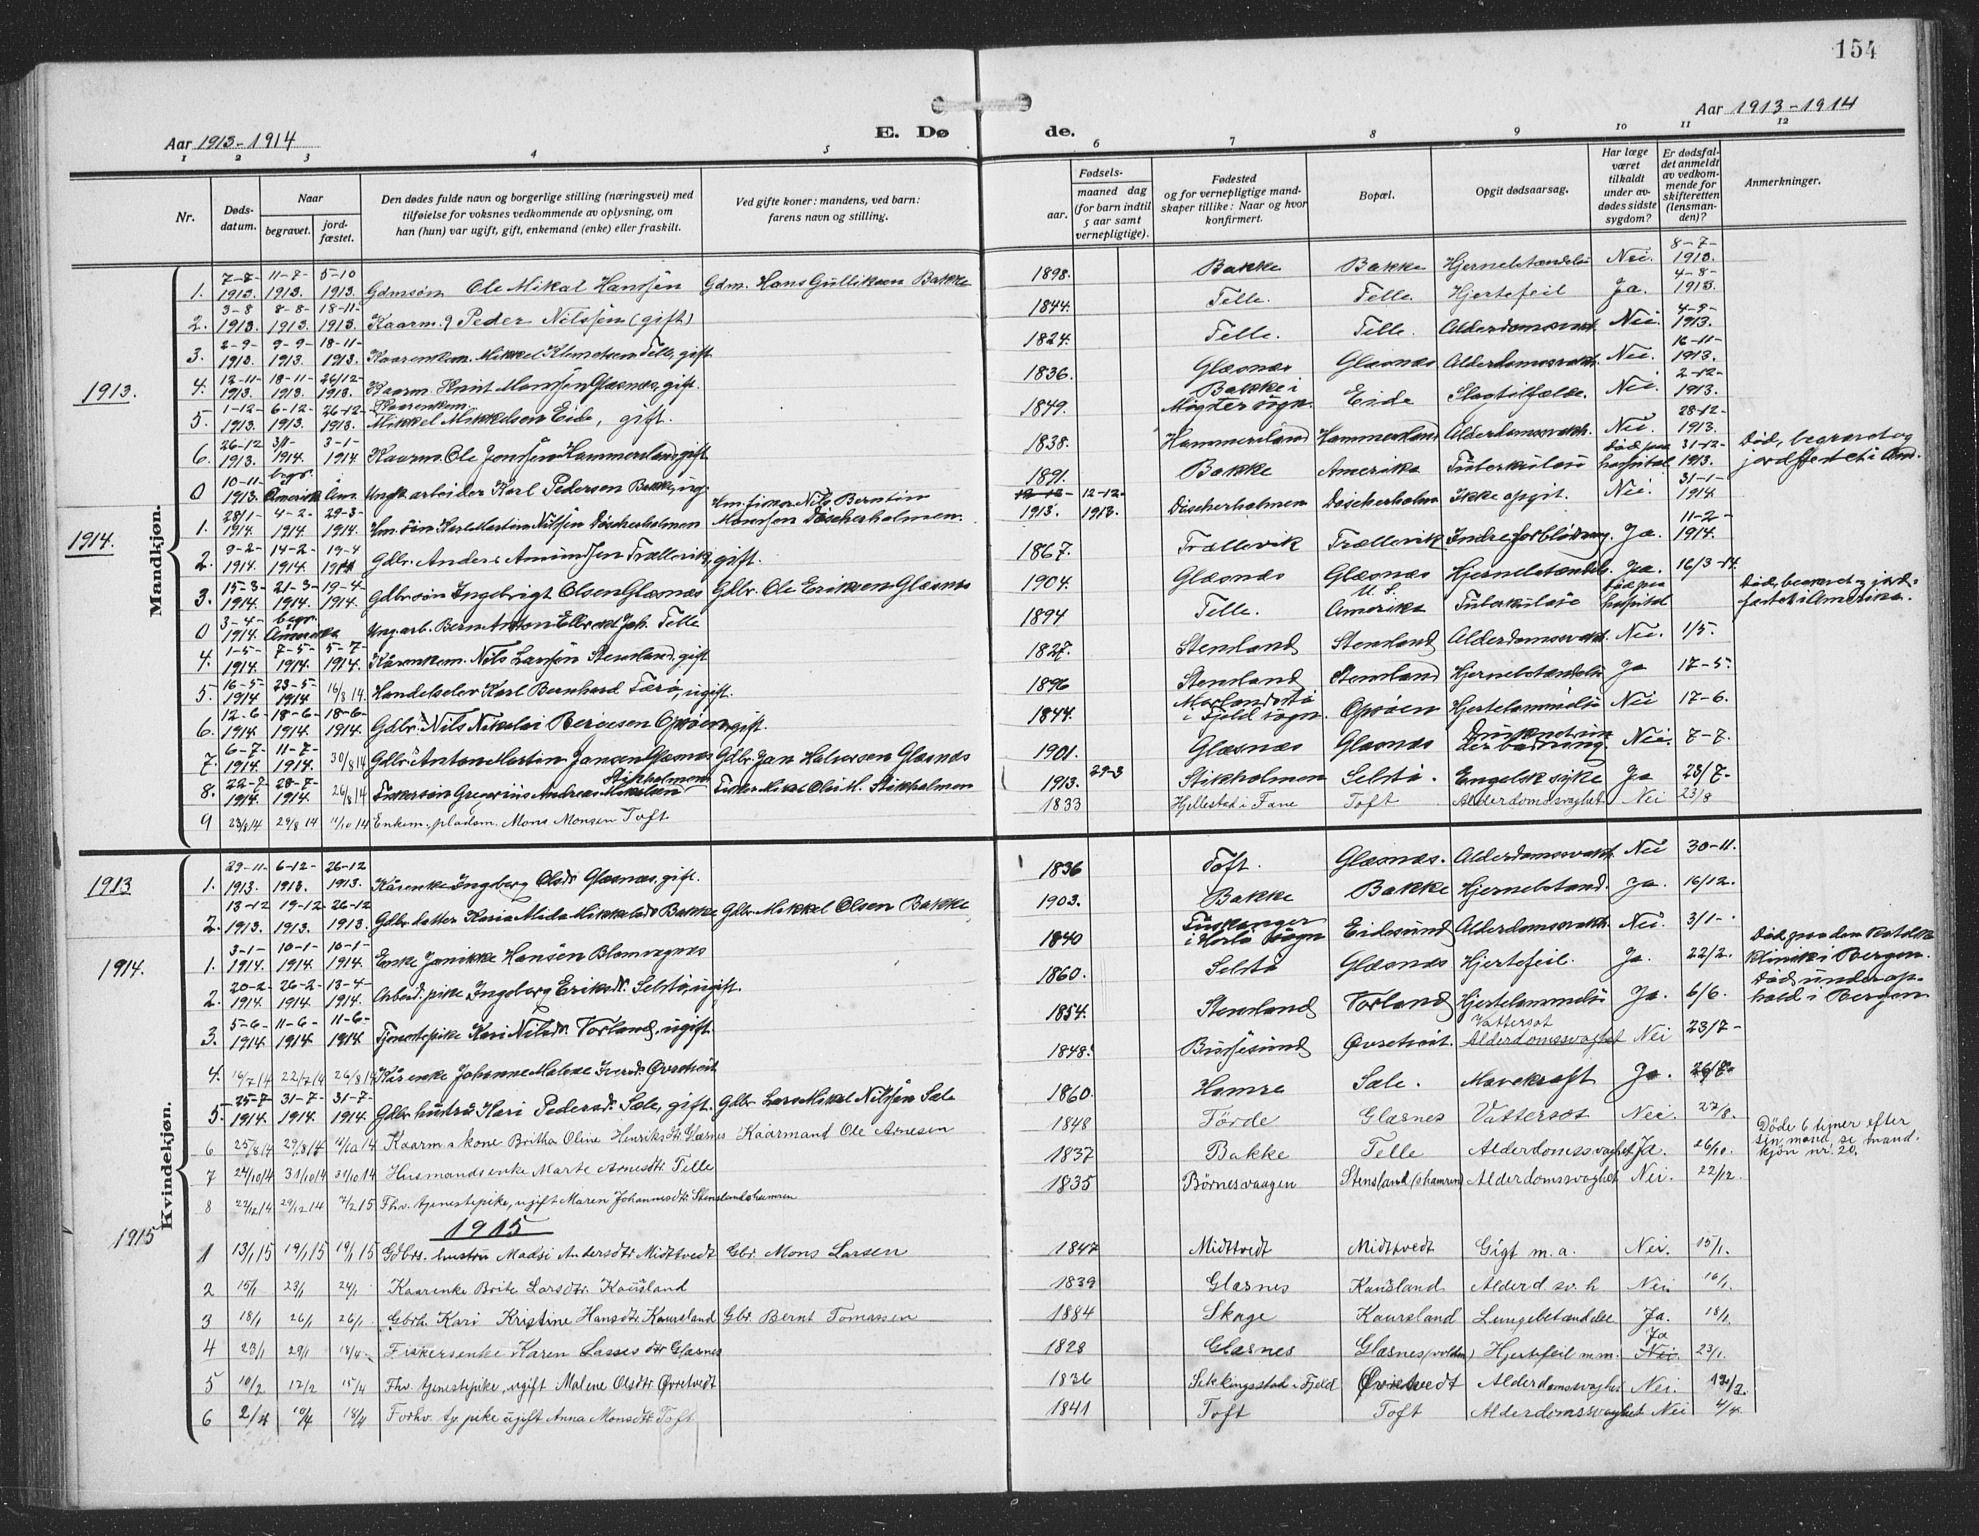 154
Aar 1913-1914
E. Dø
de.
Aar 1913-1914
1 2 3 4 5 6 7 8 9 10 11 12
Nr.
Døds-
datum.
Naar
begravet.
jord-
fæstet.
Den dødes fulde navn og borgerlige stilling (næringsvei) med
tilføielse for voksnes vedkommende av oplysning, om
han (hun) var ugift, gift, enkemand (enke) eller fraskilt.
Ved gifte koner: mandens, ved barn:
farens navn og stilling.
Fødsels-
aar.
maaned dag
(for barn indtil
5 aar samt
vernepligtige).
Fødested
og for vernepligtige mand-
skaper tillike: Naar og hvor
konfirmert.
Bopæl.
Opgit dødsaarsag.
Har læge
været
tilkaldt
under av-
dødes sidste
sygdom?
Er dødsfal-
det anmeldt
av vedkom-
mende for
skifteretten
(lensman-
den)?
Anmerkninger.
Mandkjøn.
1913.
1. 7-7-1913. 11-7-1913. 5-10 1913. Gdmsøn Ole Mikal Hanssen Gdm. Hans Gulliksen Bakke 1898. Bakke Bakke Nei. 8-7-1913.
2. 3-8 1913. 8-8-1913. 18-11-1913. Kaarm. Peder Nilssen (gift) 1844. Telle. Telle. Hjertefeil Ja. 4-8-1913.
3. 2-9-1913. 9-9-1913. 18-11-1913. Kaarenkem. Mikkel Klemetsen Telle, gift 1824. Telle. Telle. Nei. 4-9-1913.
4. 12-11-1913. 18-11-1913. 26/12-1913. Kaarm. Knut Monssen Glæsnes, gift. 1836. Glæsnes Glæsnes Nei. 16-11-1913.
5. 1-12-1913. 6-12-1913. 26-12-1913. Kaarenkem. Mikkel Mikkelsen Eide, gift. 1849. Bakke i Møgster sogn. Eide Slagtilfælde. Nei. 2-12-1913.
6. 26-12 1913. 3/1-1914. 3-1-1914 Kaarm. Ole Jonssen Hammersland gift 1838. Hammersland Hammersland Nei. 28-12-1913.
0 10-11-1913. begr. Amerika i Am. Ungk. arbeider Karl Pedersen Bakke, ug. 1891. Bakke Amerika Tuberkuløse Død paa hospital 31-12-1913. Død, begravet og jordfæstet i Am.
1914.
1. 28/1-1914. 4-2-1914. 29-3-1914. Hm. søn Karl Martin Nilssen Døscherholmen Hm. fisker Nils Berntin Monssen Døscherholmen. 1913. 12-12-1913. Døscherholmen Døscherholm Ikke opgit. Nei. 31-1-1914.
2. 9-2-1914. 14-2-1914. 19-4 1914 Gdbr. Anders Amundsen Trællevik, gift. 1867. Trællevik Trællevik Indre forblødning. Ja. 11-2-1914.
3. 15-3-1914. 21-3-1914. 19-4-1914. Gdbr. søn Ingebrigt Olsen Glæsnes Gdbr. Ole Eriksen Glæsnes 1904. Glæsnes Glæsnes Ja. 16/3-14
0 3-4-1914. begr. Amerika Ung. arb. Bern Anton Joh. Telle 1894 Telle. U. S. Amerika Tuberkuløse Død paa hospital Død, begravet og jord-fæstet i Amerika.
4. 1-5-1914. 7-5-1914. 5-7-1914. Kårenkem. Nils Larssen Stensland, gift 1827. Stensland Stensland Nei. 1/5.
5. 16-5 1914 23-5-1914 16/8 14. Handelselev Karl Bernhard Færø, ugift. 1896 Stensland Stensland Ja 17-5.
6. 12-6 1914 18-6-1914 18-6-1914. Gdbr. Nils Nikolai Opsøen, gift. 1844. i Fjeld sogn. Opsøen Hjertelammelse Nei 17-6.
7. 6-7-1914 11-7-1914. 30/8 14 Gdbr. Anton Martin Jansen Glæsnes Gdbr. Jan Halvorsen Glæsnes 1901. Glæsnes Glæsnes Druknet un-der badning. Nei. 7-7.
8. 22-7-1914. 28-7-1914. 26/8 14 Fiskersøn Gregorius Andreas Mikalsen Stikholmen Fisker Mikal Olai M. Stikholmen 1913. 29-3 Stikholmen Selstø. Engelsk syke Ja 23/7-
9 23/8 14 29/8 14 11/10 14 Enkem. pladsm. Mons Monsen Toft 1833 Hjellestad i Fane Toft Alderdomssvaghet Nei 23/8
Kvindekjøn.
1913
1. 29-11-1913. 6-12-1913. 26-12 1913. Kårenke Ingeborg Olsdr Glæsnes, gift. 1836 Toft. Glæsnes. Nei 30-11.
2. 13-12 1913. 19-12-1913. 26-12 1913. Gdbr. datter Karia Alida Mikkelsdr Bakke Gdbr. Mikkel Olsen Bakke 1903. Bakke Bakke Ja. 16/12.
1914.
1. 3-1-1914. 10-1-1914. 10-1-1914. Enke Janikke Hansen Blomvagnes 1840 Eidesund Nei. 3/1-
2. 20-2-1914. 26-2-1914. 13-4-1914. Arbeid. pike Ingeborg Eriksdr. Selstø, ugift. 1860. Selstø Glæsnes Hjertefeil. Ja. 22/2. Død paa den Klinik i Bergen.
3. 5-6-1914. 11-6-1914. 11-6-1914 Tjenestepike Kari Nilsdr. Vorland, ugift. 1854. Stensland Vorland Hjertelammelse Ja. 6/6. Død under op-hold i Bergen
4. 16/7 14 22/7 14 26/8 14 Kårenke Johanne Malene Iversdr. Øvretveit 1848. Buss​esund Øvretveit. Vattersot Alderdomssvaghet Nei 23/7-
5. 25-7 1914. 31-7 1914. 31-7 1914 Gdbr. hustru Kari Pedersdr. Sæle, gift. Gdbr. Lars Mikal Nilssen Sæle 1860. Hamre Sæle. Mavekræft Ja. 26/7.
6 25/8 14 29/8 14 11/10 14 Kaarm.s kone Britha Oline Henriksdtr. Glæsnes Kaarmand Ole Arnesen 1848 Førde Glæsnes Vattersot Nei. 27/8. Døde 6 timer efter sin mand, se mand-kjøn nr. 20.
7 24/10 14 31/10 14 31/10 14 Husmandsenke Marte Arnesdtr. Telle 1837 Bakke Telle Alderdomssvaghet Ja. 26/10.
8 22/12 14 29/12 14 7/2 15 Fhv. tjenestepike, ugift Maren Johannesdtr. Stenslandshamren 1835 Børnesvaagen Stensland (Shamren) Alderdomssvaghet Nei. 22/12.
1915
1915
1 13/1 15 19/1 15 19/1 15 Gdbrs. hustru Madsi Andersdtr. Midttvedt Gbr. Mons Larsen 1847 Midttvedt Midttvedt Gigt m. a. Nei. 15/1.
2 15/1 23/1 24/1 Kaarenke Brite Larsdtr. Kausland 1839 Glæsnes Kausland Alderd sv. h Nei. 16/1.
3 18/1 26/1 26/1 Gbrh. Kari Kristine Hansdtr. Kausland Gbr. Bernt Tomassen 1884 Skoge Kausland Lungebetændelse Ja. 18/1.
4 23/1 29/1 18/4 Fiskersenke Karen Lassesdtr Glæsnes 1828 Glæsnes Glæsnes (volden) Hjertefeil m.m. Ja Nei. 23/1.
5 10/2 17/2 15/4 Fhv. tjenestepike, ugift Malene Olsdtr. Øvretvedt 1836 Sekkingsstad i Fjeld Øvretvedt Alderdomssvaghet Nei.
6 2/4 10/4 18/4 Forhv. tj. pike ugift Anna Monsdtr. Toft 1841 Toft Toft Alderdomssvaghet Nei 4/4.